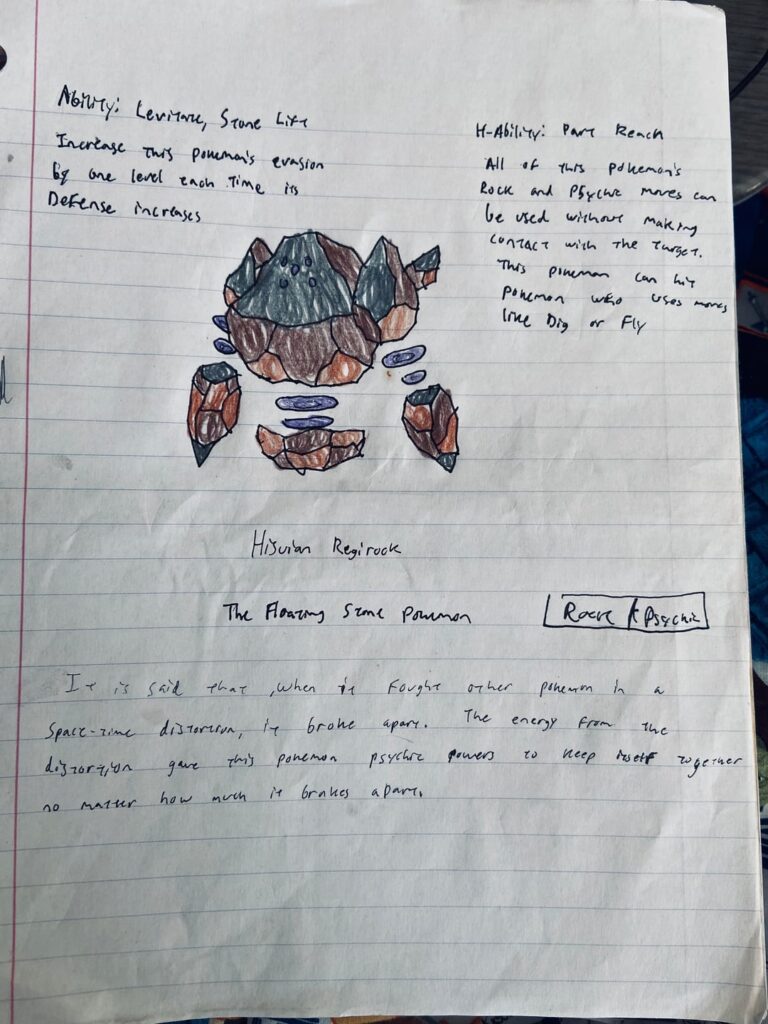 Ability: Levitate, Stone Lift
Increase this pokemon's evasion
by one level each time its
Defense increases
H-Ability: Part Reach
All of this pokemon's
Rock and Psychic moves can
be used without making
contact with the target.
This pokemon can hit
pokemon who uses moves
like Dig or Fly
Hisuian Regirock
The Floating Stone pokemon
Rock / Psychic
It is said that, when it fought other pokemon in a
space-time distortion, it broke apart. The energy from the
distortion gave this pokemon psychic powers to keep itself together
no matter how much it brakes apart.